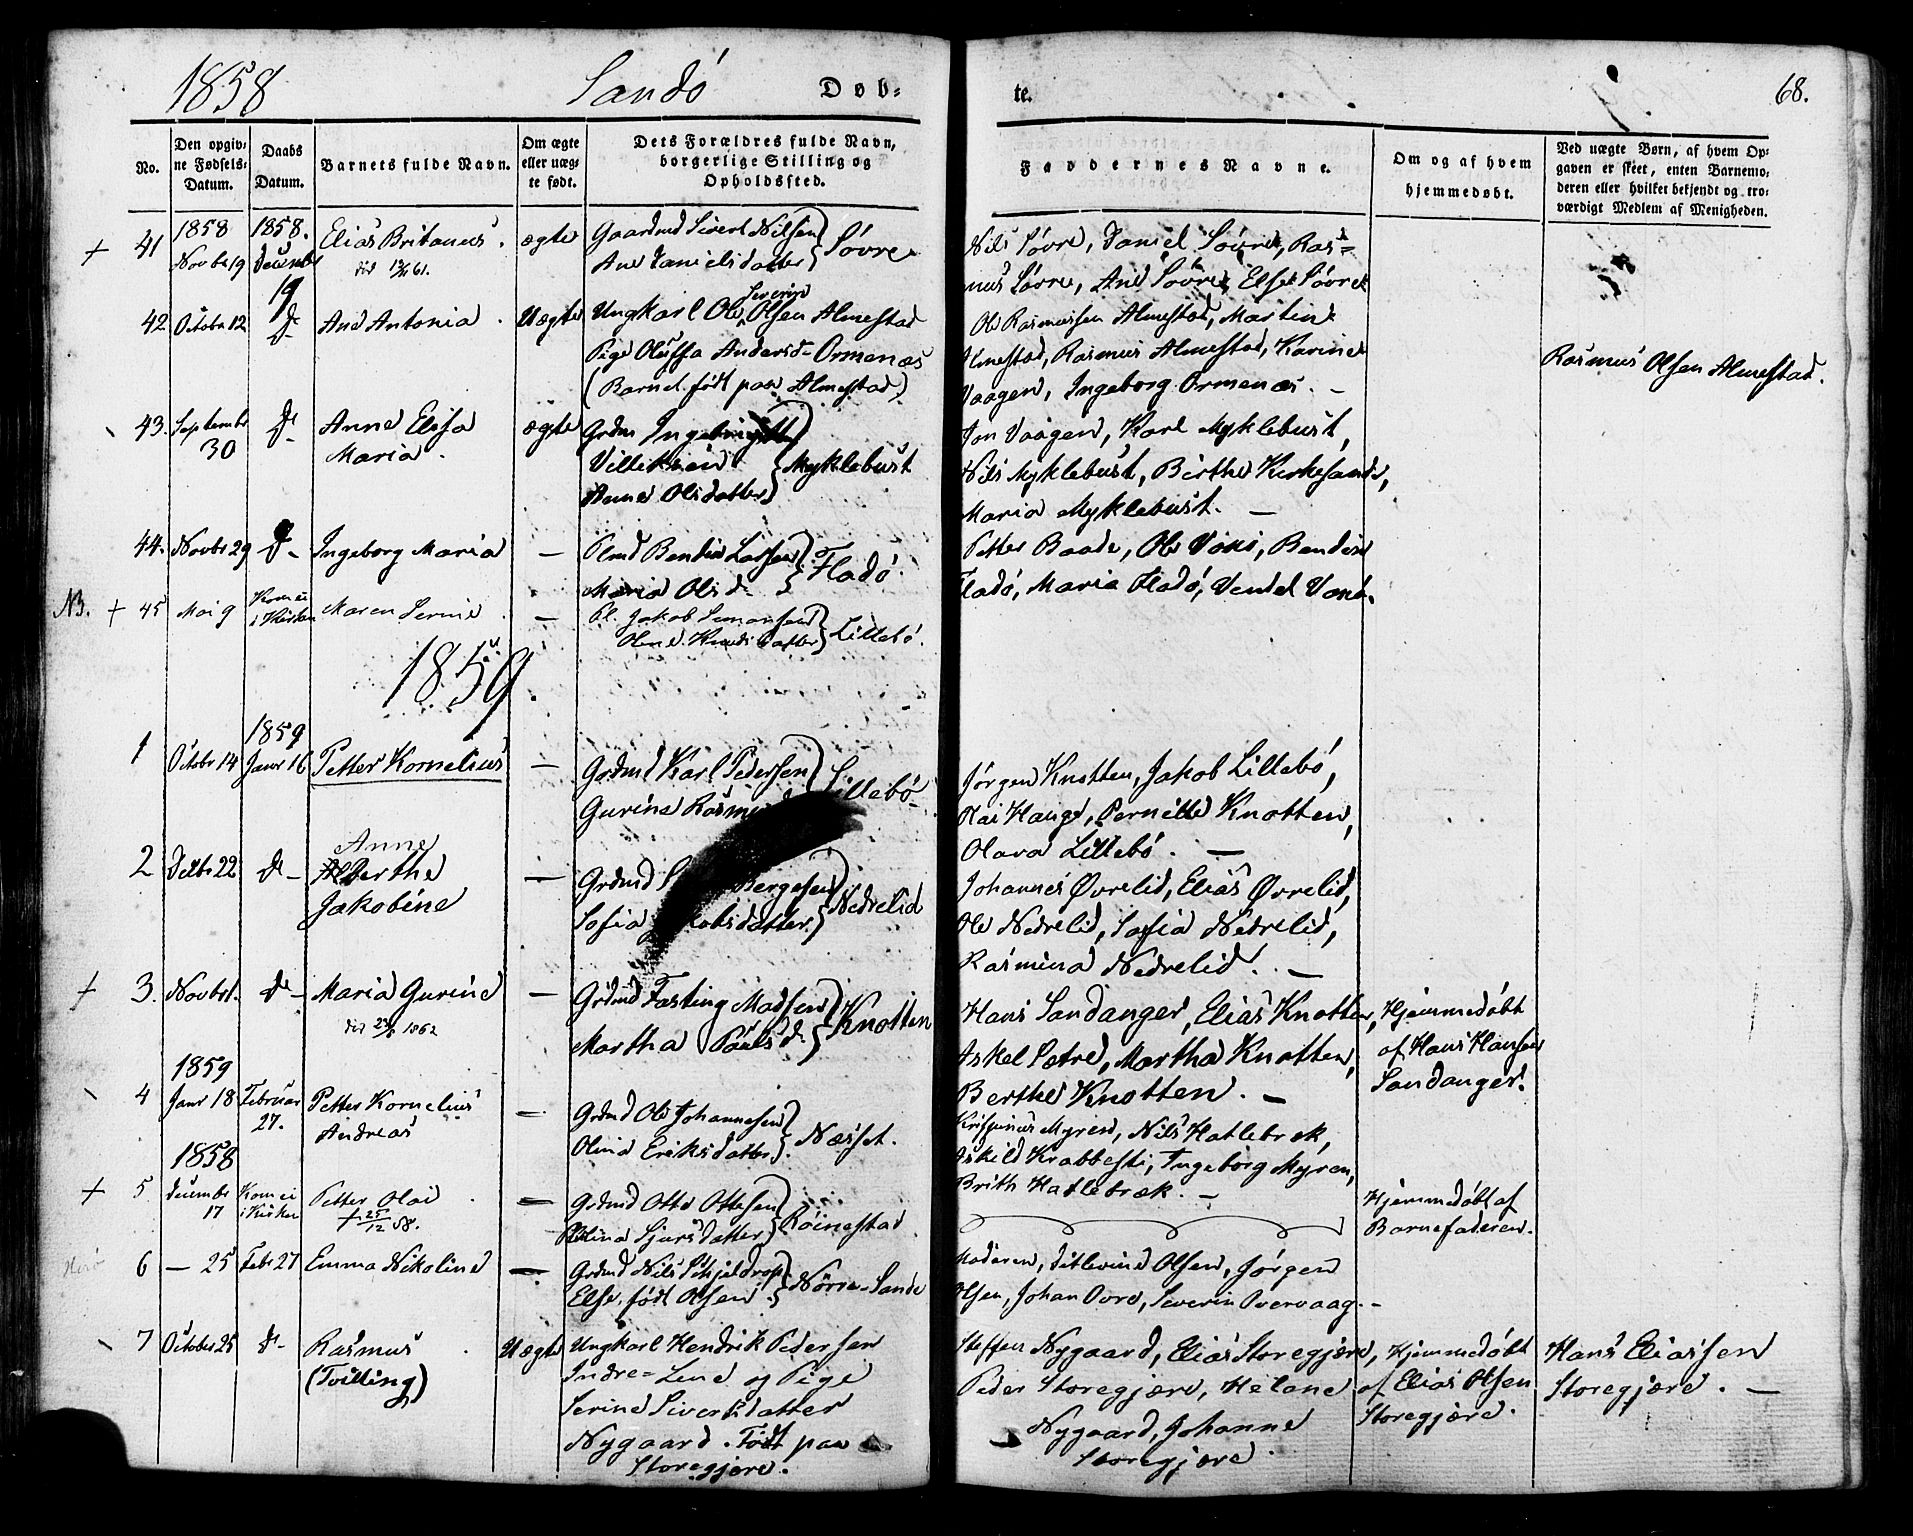 1858 Sandö Døb-
te. 68.
No.
Den opgiv-
ne Fødsels-
Datum.
Daabs
Datum.
Barnets fulde Navn.
Om ægte
eller uæg-
te født.
Dets Forældres fulde Navn,
borgerlige Stilling og
Opholdssted.
Faddernes Navne.
Om og af hvem
hjemmedøbt.
Ved uægte Børn, af hvem Op-
gaven er skeet, enten Barnemo-
deren eller hvilket bekjendt og tro-
værdigt Medlem af Menigheden.
+ 41
1858
Novbr 19
1858.
Decembr
19
Elias Britanus.
ægte
Gaardmd Sivert Nilsen
Ane Danielsdatter } Søvre
Nils Søvre, Daniel Søvre, Ras-
mus Søvre, Ane Søvre, Else Søvre
42 Octobr 12 do Ane Antonia. Uægte
Ungkarl Ole Severin Olsen Almestad
Pige Oluffa Andersd- Ormenæs
(Barnet født paa Almestad)
Ole Rasmussen Almestad, Martin
Almestad, Rasmus Almestad, Karine
Vaagen, Ingeborg Ormenæs. -
Rasmus Olsen Almestad.
43. Septembr
30
do
Anne Elisa
Maria.
ægte
Grdm
Villiksen
Anne Olsdatter } Myklebust
Jon Vaagen, Karl Myklebust,
Nils Myklebust, Birthe Kirkesande,
Maria Myklebust. -
44. Novbr 29 do - Ingeborg Maria -
Plmd Bendix Lassen
Maria Olsd } Fladö.
Petter Baade, Ole Voxö, Bendix
Fladö, Maria Fladö, Vendel Voxö.
NB. + 45 Mai 9
Kom ei
i Kirken
Maren Serine -
Pl. Jakob Simonsen
Oline Knudsdatter } Lillebö.
1859.
1 Octobr 14
1859
Janr 16
Petter Kornelius -
Grdmd Karl Pedersen
Gurine } Lillebö
Jörgen Knotten, Jakob Lillebö,
Olai Hauge, Pernille Knotten,
Olava Lillebö. -
2 Decbr 22 do -
Anne
Berthe
Jakobine
-
Grdmd Bergesen
Sofia } Nedrelid
Johannes Øvrelid, Elias Øvrelid,
Ole Nedrelid, Sofia Nedrelid,
Rasmina Nedrelid. -
+ 3. Novbr 1. do - Maria Gurine -
1862
Grdmd Fasting Madsen
Martha Paulsd } Knotten
Hans Sandanger, Elias Knotten,
Askel Sætre, Martha Knotten,
Berthe Knotten. -
Hjemmedöbt
af Hans Hansen
Sandanger.
1859
4 Janr 18
Februar
27.
Petter Kornelius
Andreas
-
Grdmd Ole Johannesen
Olina Eriksdatter } Næsset.
Krispinus Myren, Nils Hatlebræk,
Askild Krabbesti, Ingeborg Myren,
Brith Hatlebræk. -
1858
+ 5 Decembr
17
Kom ei
i Kirken
Petter Olai
+ 25/12 58.
-
Grdmd Otte Ottesen
Olina Sjursdatter } Röinestad
Hjemmedöbt af
Barnefaderen.
6 - 25 Febr 27 Emma Nikoline -
Grdmd Nils Schjeldrop
Else, født Olsen } Nörre-Sande
Moderen, Ditlevine Olsen, Jörgen
Olsen, Johan Overvaag, Severin Overvaag. -
7 October 25 do -
Rasmus
(Tvilling)
Uægte
Ungkarl Hendrik Pedersen
Indre-Lene og Pige
Serine Sivertsdatter
Nygaard. Födt paa
Storegjære.
Steffen Nygaard, Elias Storegjære,
Peder Storegjære, Helene
Nygaard, Johanne
Storegjære.
Hjemmedöbt
af Elias Olsen
Storegjære.
Hans Eliassen
Storegjære. -